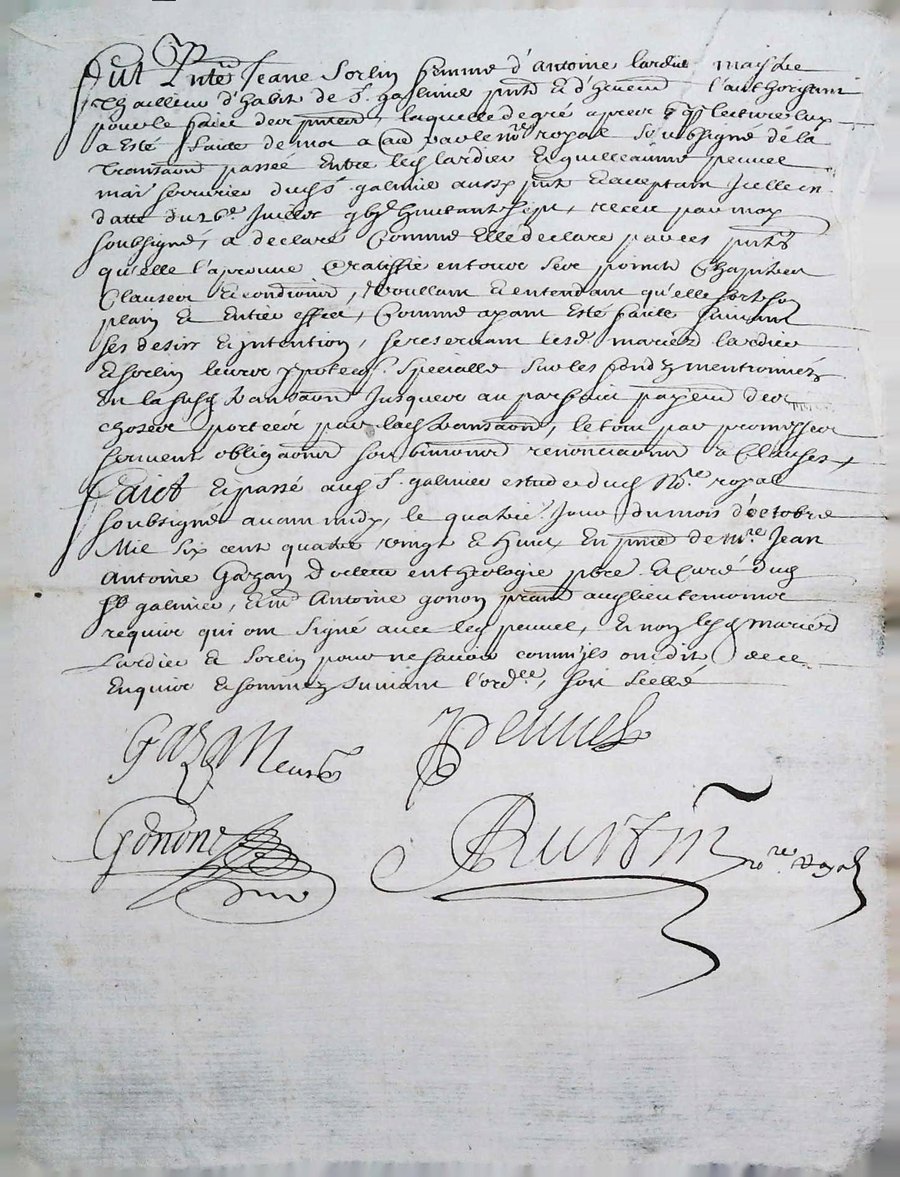 Fut pnte Jeane Sorlin femme d'Antoine lardier
tailleur d'habit de St galmier pnte & d'heuem l'authorizant
pour le faire des pntes, laquelle de gré apres q lecture luy
a esté faite de mot a par le nore royal soubsigné de la
transaon passée entre led lardier & guilleaume peuuel
serrurier dud St galmier aussy pnt & aceptant Icelle en
datte du 26e Juillet gbic huictant sept, receu par moy
soubsigné, a declaré Comme Elle declare par ces pntes
qu'elle l'apreuue & ratiffie en tous ses points Chapitres
Clauses & conditions, voullant & entendant qu'elle sorte son
plain & Entier effect, Comme ayant Esté faite suiuant
ses desirs & intention, se reseruant lesd mariez lardier
& sorlin leurs ypoteqs specialle sur les fondz mentionnéz
En la susd transaon Jusques au parfait payemt des
choses portéés par lad transaon, le tout par promesses
serment obligaons soubmions renonciaons & Clauses
Faict & passé aud St galmier estude dud Nore royal
soubsigné auant midy, le quatrie Jour du mois d'octobre
Mil six cent quatre vingt & huict En pnce de mre Jean
Antoine Gazan Docteur en theologie pbre & Curé dud
St galmier, & me Antoine gonon pratn aud lieu temoins
requis qui ont signé auec led peuuel, & non lesd mariéz
Lardier & Sorlin pour ne sauoir comm'ils ont dit de ce
Enquis & sommez suiuant l'ordce, soit scellé
Gazan Curé
Peuuel
Gonon
nore royal